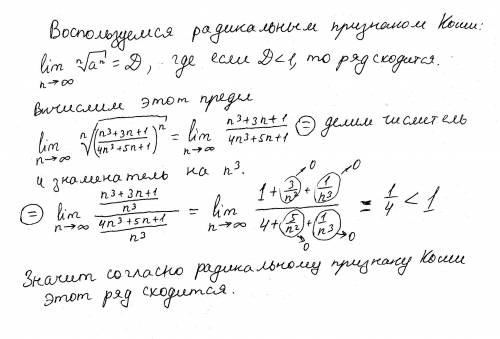 Воспользуемся радикальным признаком Коши:
lim n→∞ ⁿ√aⁿ = D, где если D<1, то ряд сходится.
Вычислим этот предел
lim n→∞ ⁿ√((n³+3n+1)/(4n³+5n+1))ⁿ = lim n→∞ (n³+3n+1)/(4n³+5n+1) ⊜ делим числитель
и знаменатель на n³.
⊜ lim n→∞ ((n³+3n+1)/n³)/((4n³+5n+1)/n³) = lim n→∞ (1+3/n²+1/n³)/(4+5/n²+1/n³) = 1/4 < 1
Значит согласно радикальному признаку Коши
этот ряд сходится.